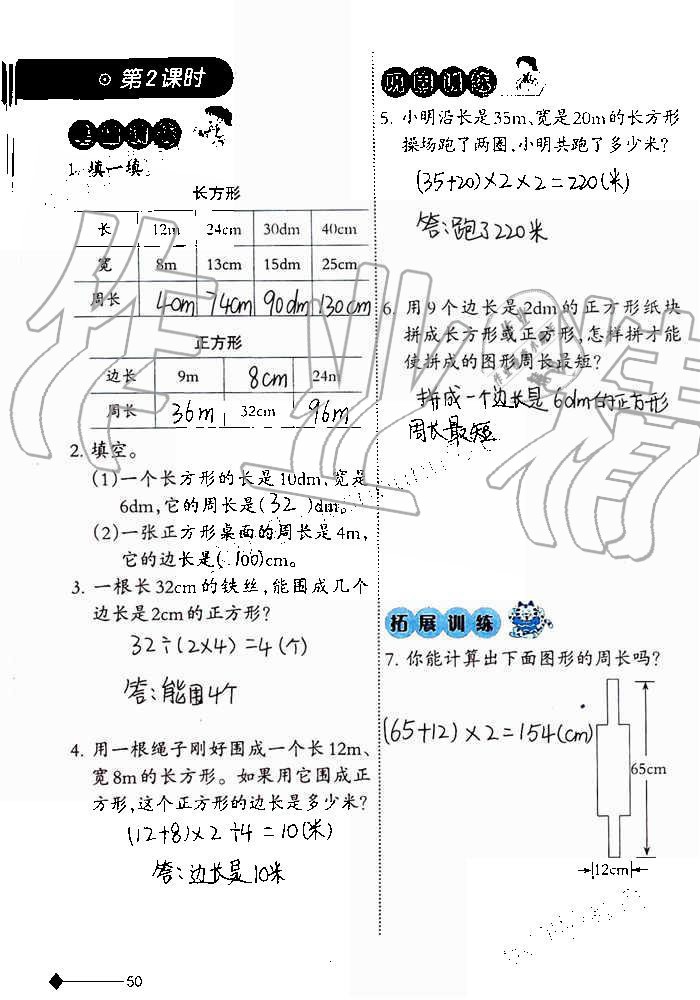 第2课时
1. 填一填
长方形
长 12m 24cm 30dm 40cm
宽 8m 13cm 15dm 25cm
周长 40m 74cm 90dm 130cm
正方形
边长 9m 8cm 24m
周长 36m 32cm 96m
2. 填空。
(1)一个长方形的长是10dm,宽是
6dm,它的周长是(32)dm。
(2)一张正方形桌面的周长是4m,
它的边长是(100)cm。
3. 一根长32cm的铁丝,能围成几个
边长是2cm的正方形?
32÷(2×4)=4(个)
答:能围4个
4. 用一根绳子刚好围成一个长12m、
宽8m的长方形。如果用它围成正
方形,这个正方形的边长是多少米?
(12+8)×2÷4=10(米)
答:边长是10米
50
巩固训练
5. 小明沿长是35m、宽是20m的长方形
操场跑了两圈,小明共跑了多少米?
(35+20)×2×2=220(米)
答:跑了220米
6. 用9个边长是2dm的正方形纸块
拼成长方形或正方形,怎样拼才能
使拼成的图形周长最短?
拼成一个边长是6dm的正方形
周长最短
拓展训练
7. 你能计算出下面图形的周长吗?
(65+12)×2=154(cm)
65cm
12cm